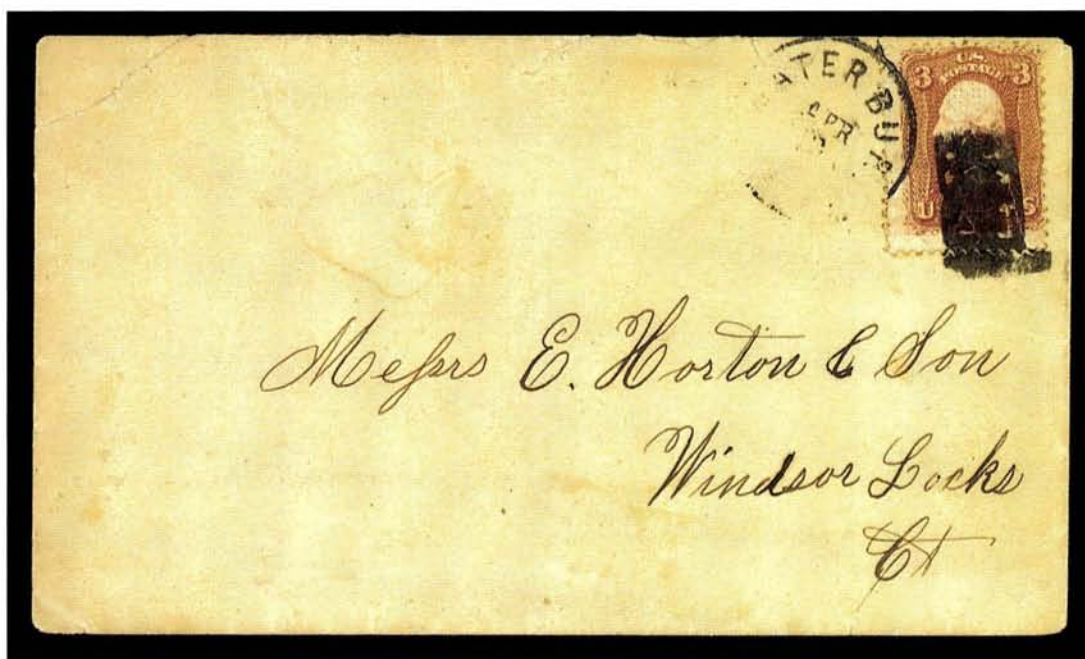 ATERBUR
APR
3 U.S. POSTAGE 3
U S
Messrs E. Horton & Son
Windsor Locks
Ct